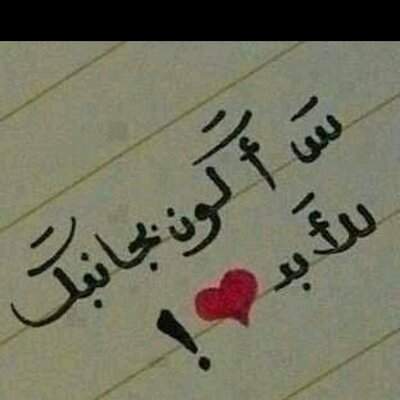 سَأكون بجانبك
للأبد ❤!